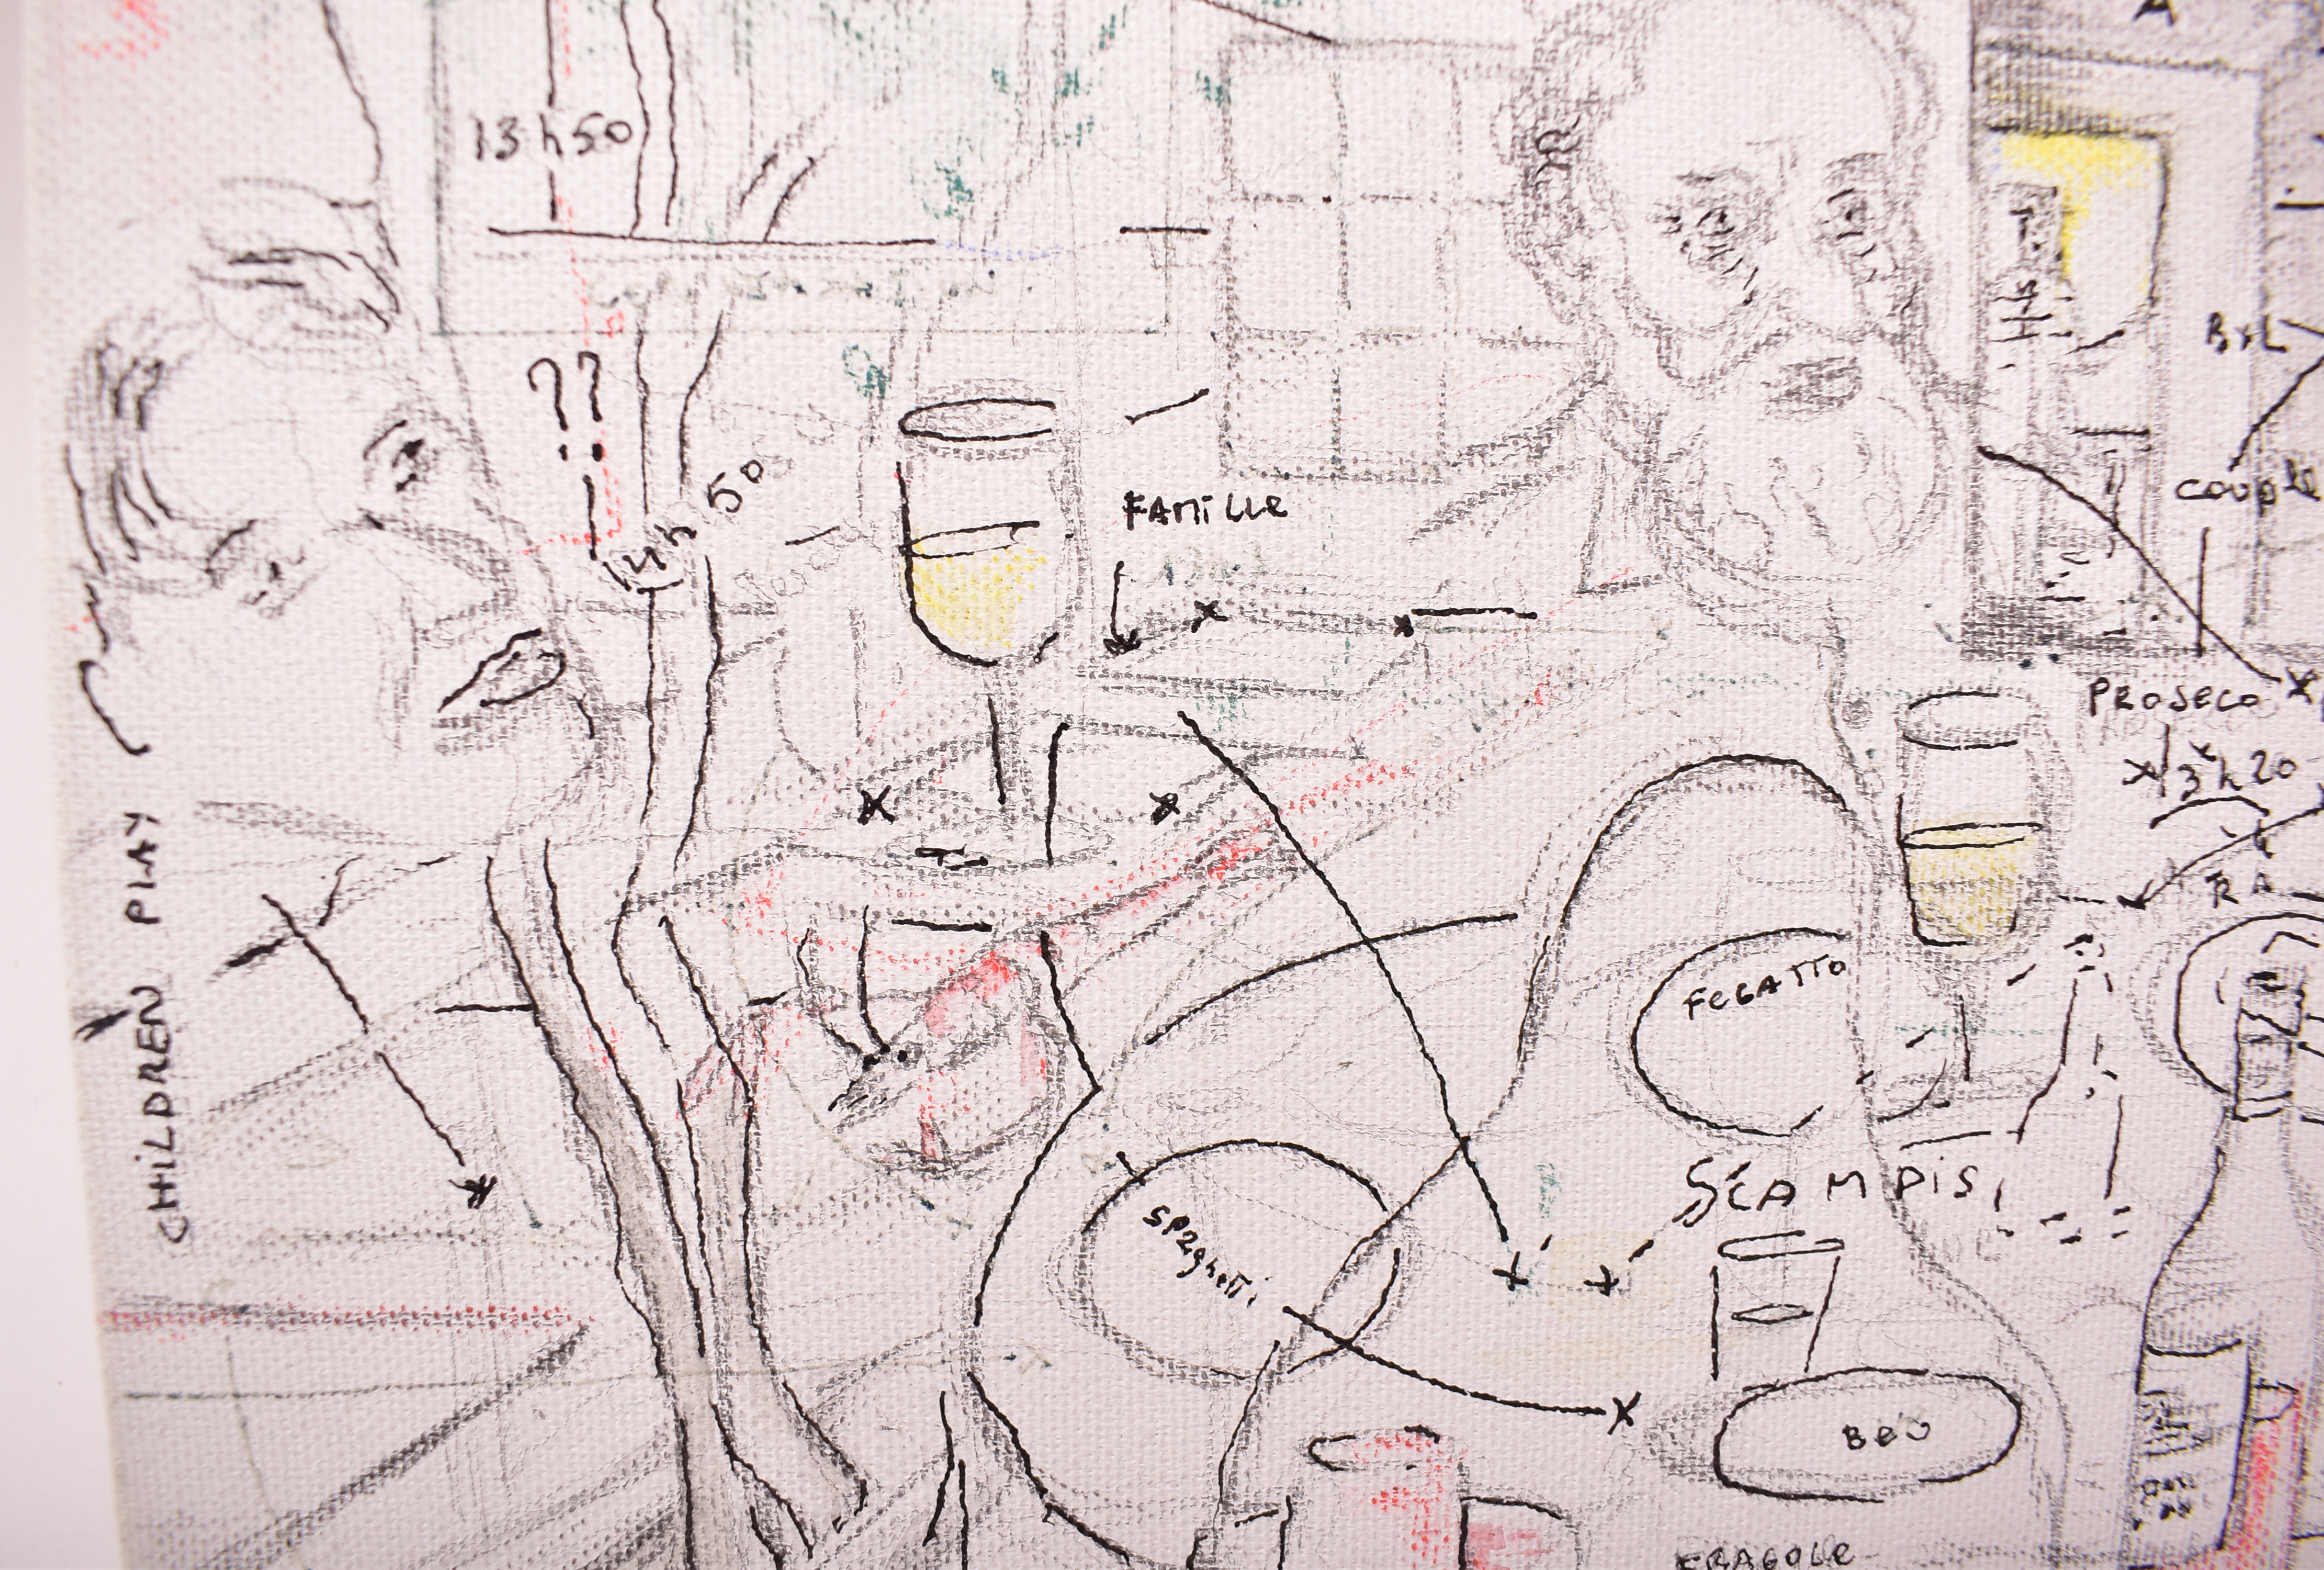 A
13h50
??
BXL
50
FAMiLLe
COUPLE
PROSECO
13h20
CHiLDREN PLAY
FEGATTO
SCAMPiS
SPaghetti
BEU
FRAGOLE